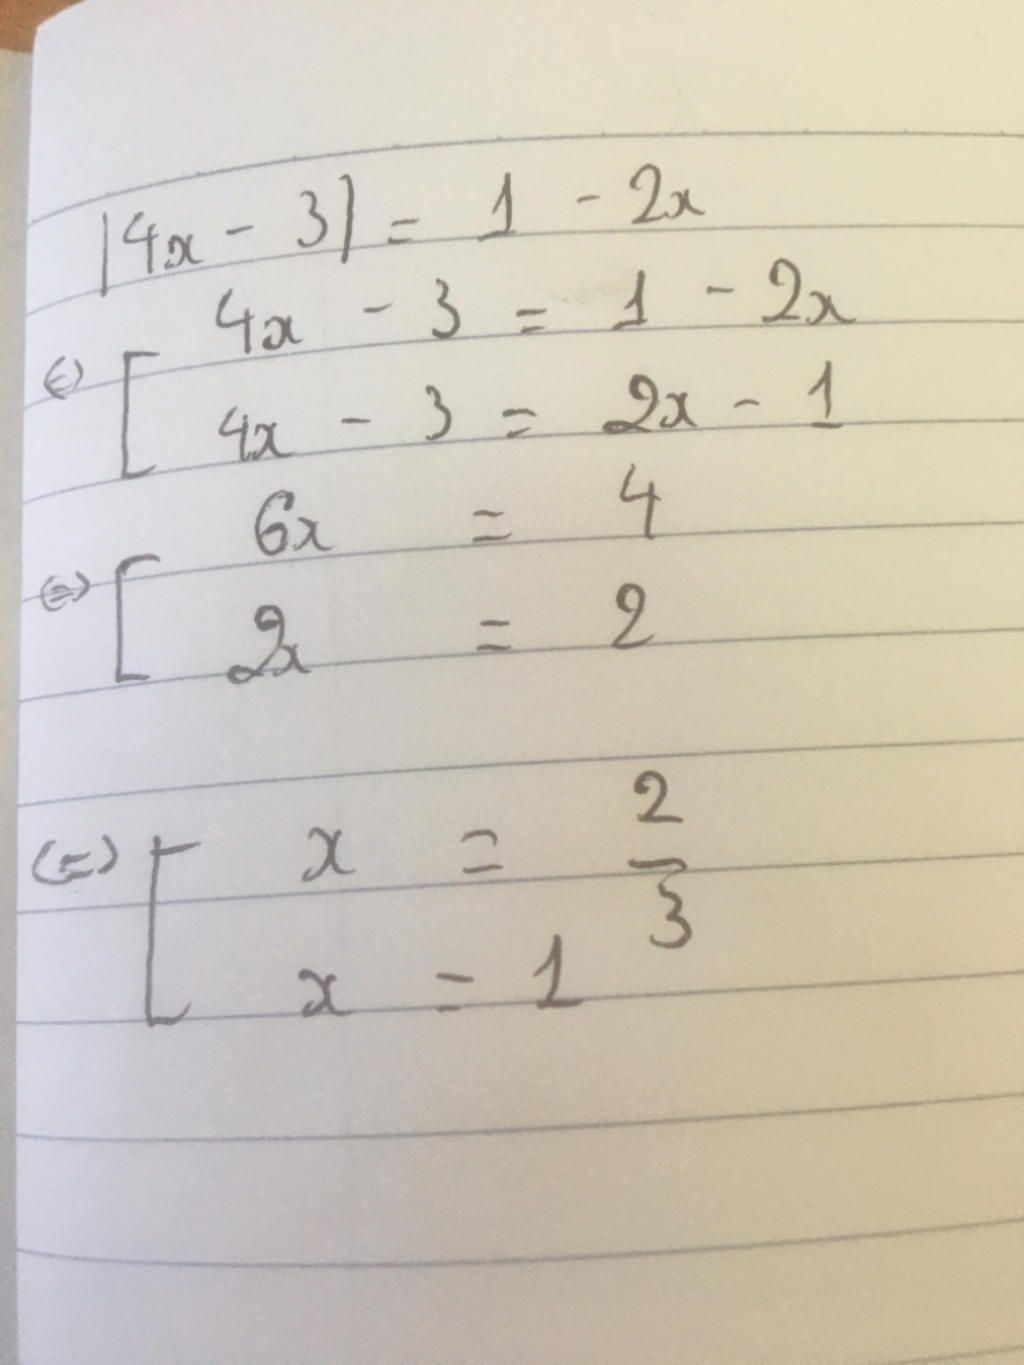 |4x - 3| = 1 - 2x
4x - 3 = 1 - 2x
(=) [ 4x - 3 = 2x - 1
6x = 4
(=) [ 2x = 2
(=) [ x = 2/3
x = 1